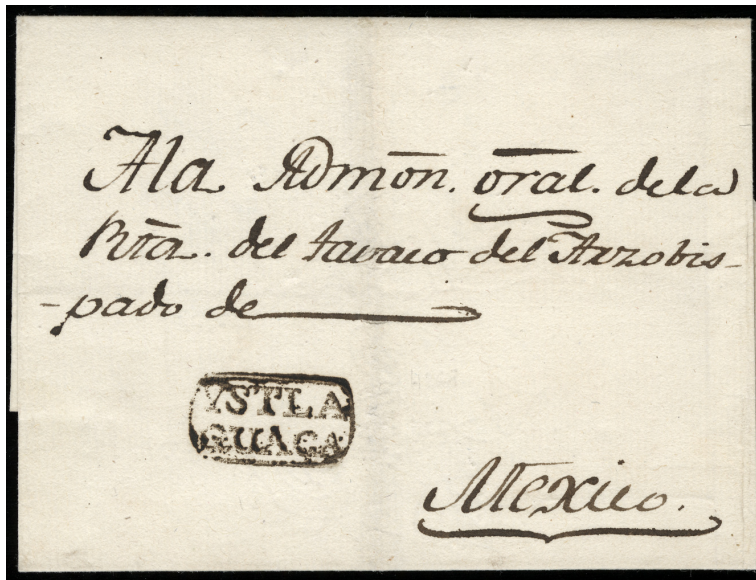 A la Admōn. gr̄al. de la
Rta̅. del tavaco del Arzobis-
-pado de
YSTLA
GUACA
Mexico.